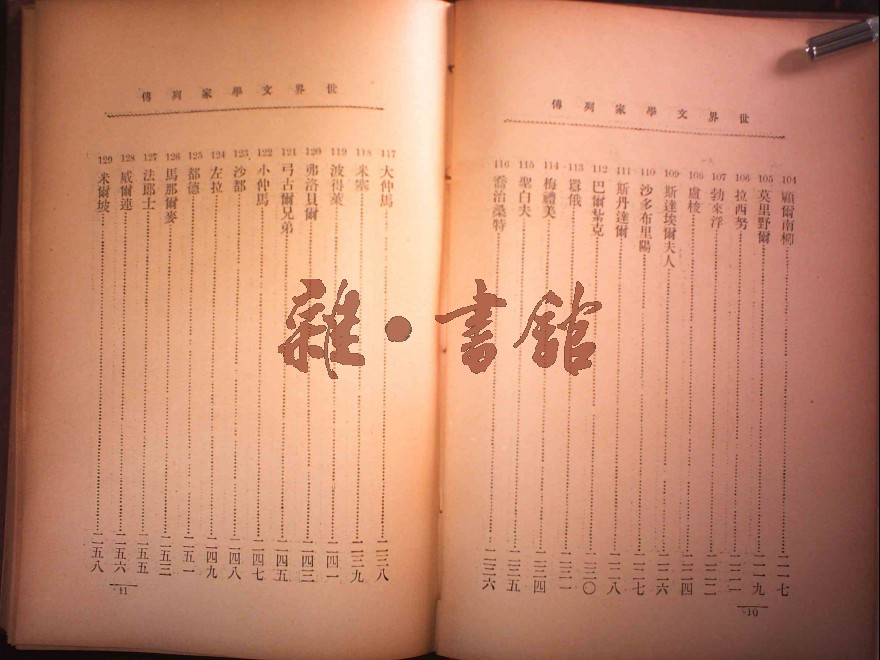 世界文學家列傳
104 顧爾南柳……二一七
105 莫里野爾……二一九
106 拉西努……二二一
107 勃來浮……二二三
108 盧梭……二二四
109 斯達埃爾夫人……二二六
110 沙多布里陽……二二七
111 斯丹達爾……二二八
112 巴爾紮克……二三〇
113 囂俄……二三一
114 梅禮美……二三四
115 聖白夫……二三五
116 喬治桑特……二三六
10
世界文學家列傳
117 大仲馬……二三八
118 米塞……二三九
119 波得萊……二四一
120 弗洛貝爾……二四三
121 弓古爾兄弟……二四五
122 小仲馬……二四七
123 沙都……二四八
124 左拉……二四九
125 都德……二五一
126 馬那爾麥……二五三
127 法郎士……二五五
128 威爾連……二五六
129 米爾坡……二五八
11
雜•書館